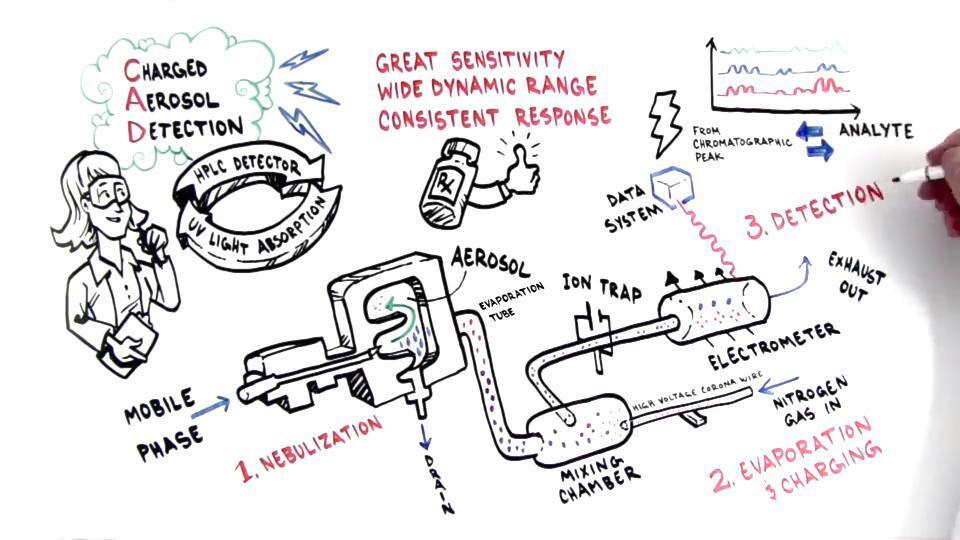 CHARGED
AEROSOL
DETECTION
HPLC DETECTOR
UV LIGHT ABSORPTION
GREAT SENSITIVITY
WIDE DYNAMIC RANGE
CONSISTENT RESPONSE
RX
FROM
CHROMATOGRAPHIC
PEAK
ANALYTE
DATA
SYSTEM
3. DETECTION
AEROSOL
EVAPORATION
TUBE
ION TRAP
EXHAUST
OUT
ELECTROMETER
MOBILE
PHASE
1. NEBULIZATION
DRAIN
HIGH VOLTAGE CORONA WIRE
NITROGEN
GAS IN
MIXING
CHAMBER
2. EVAPORATION
& CHARGING